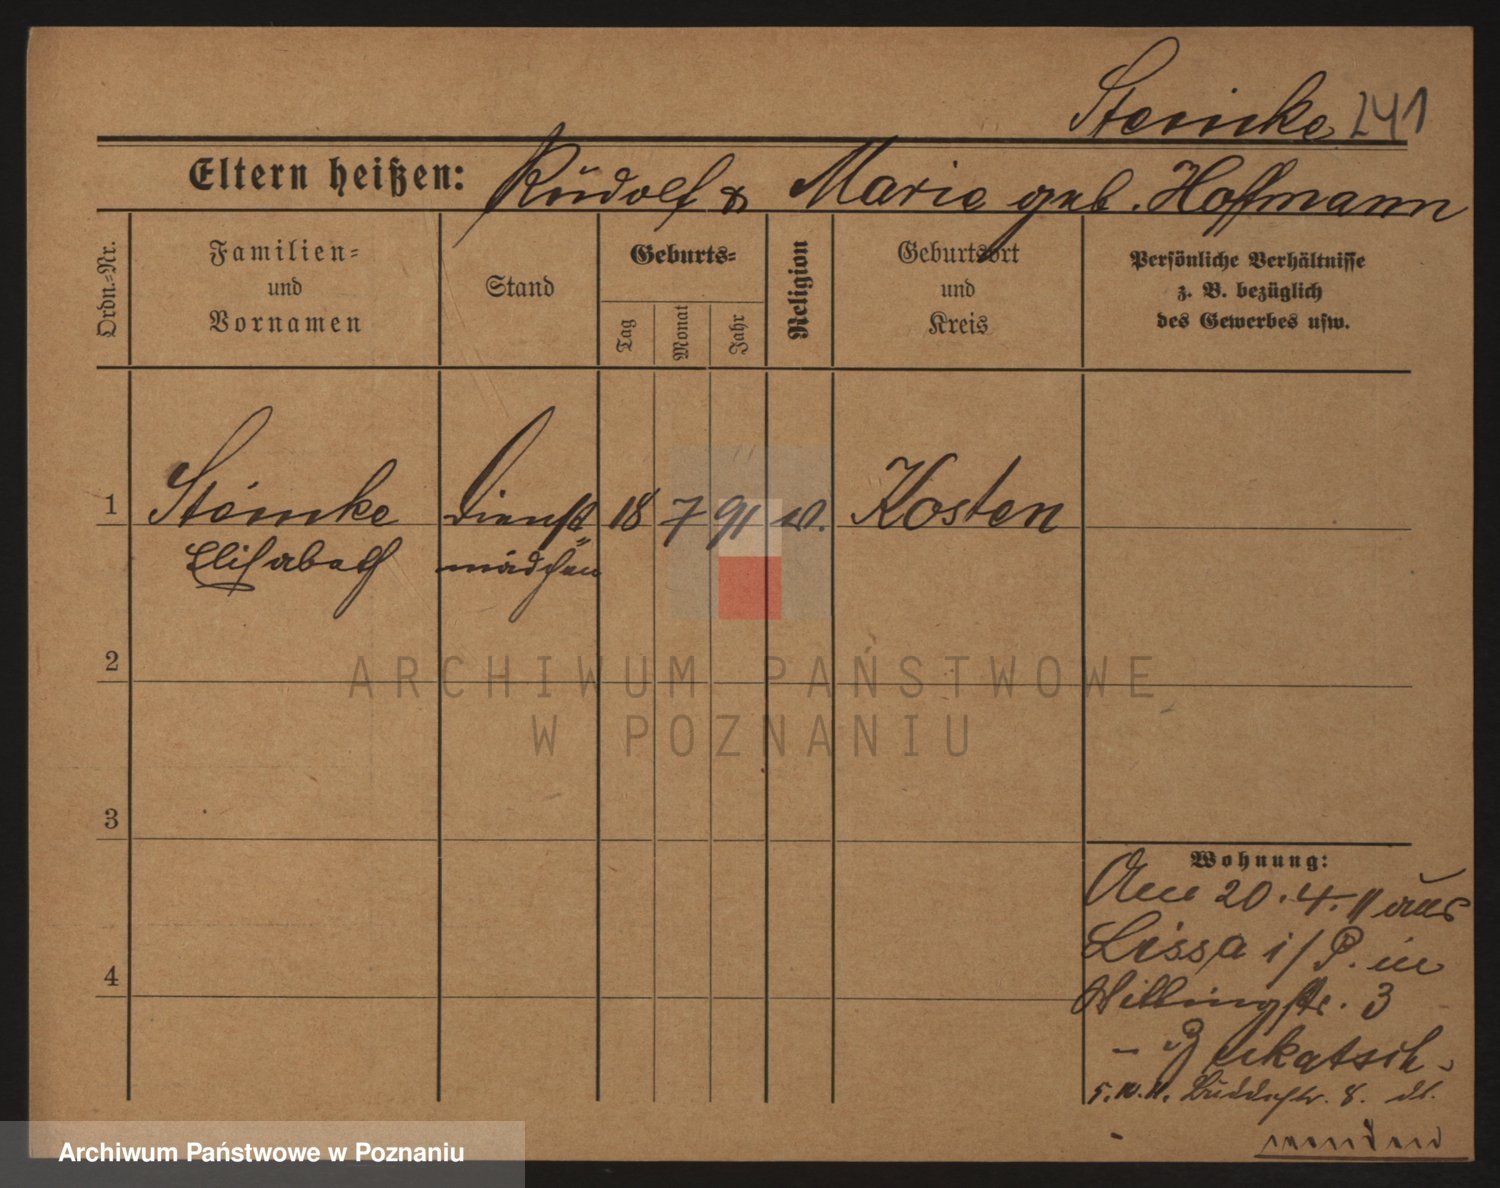 Steinke 241
Eltern heißen: Rudolf & Marie geb. Hoffmann
Ordn.-Nr.
Familien-
und
Vornamen
Stand
Geburts-
Tag
Monat
Jahr
Religion
Geburtsort
und
Kreis
Persönliche Verhältnisse
z. B. bezüglich
des Gewerbes usw.
1 Steinke Dienst- 18 7 91 Kosten
Elisabeth mädchen
2
ARCHIWUM PAŃSTWOWE
W POZNANIU
3
Wohnung:
Am 20.4.11 aus
Lissa i/P. in
Willingstr. 3
4
5.10.11. 8.
wenden
Archiwum Państwowe w Poznaniu